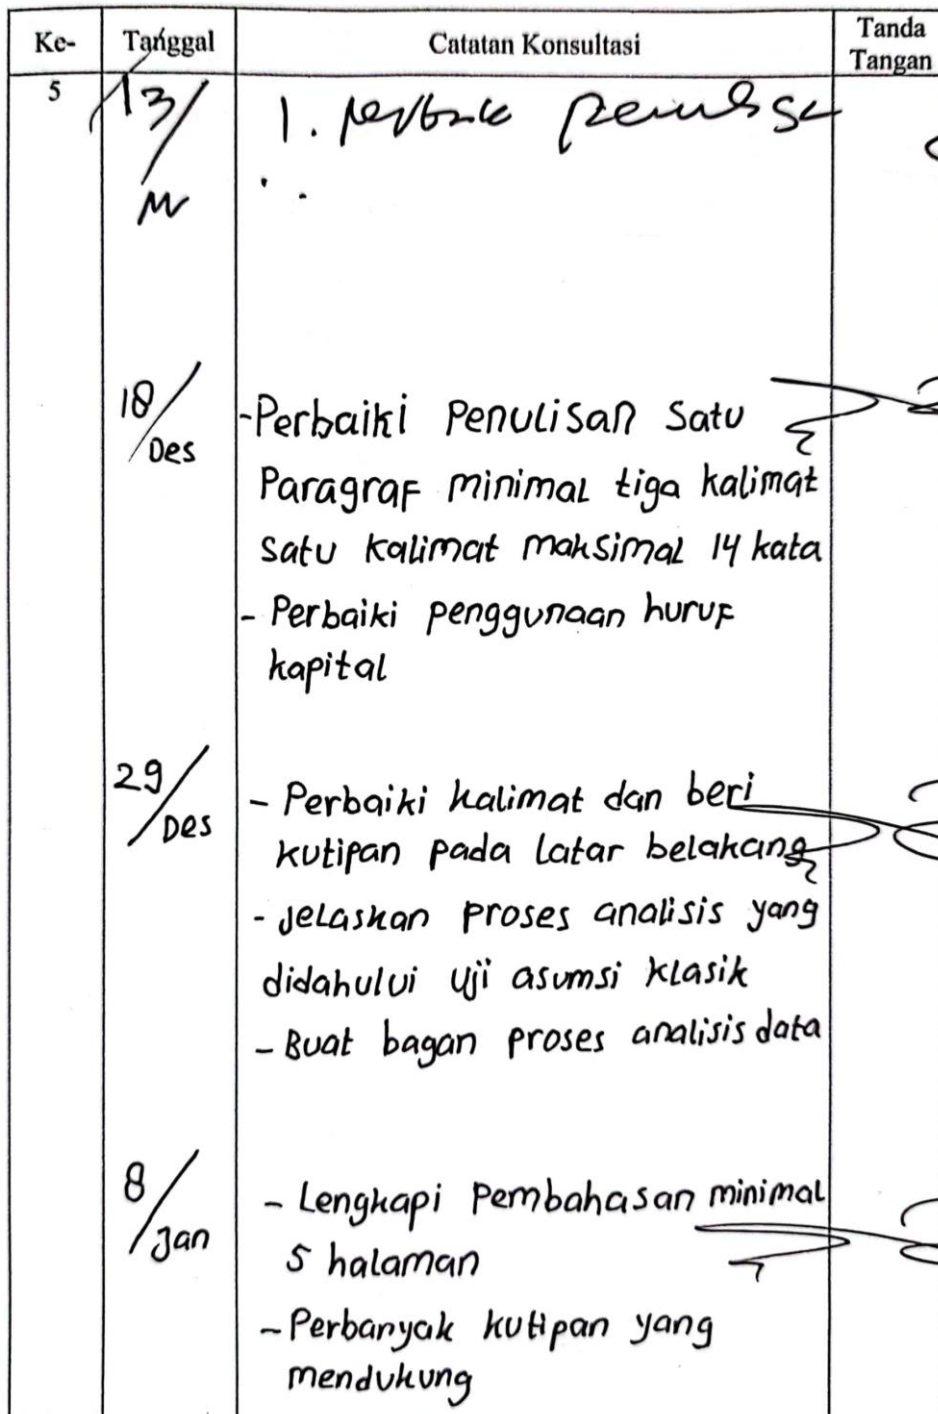 Ke- Tanggal Catatan Konsultasi Tanda Tangan
5 13/
1.
18/Des
-Perbaiki Penulisan Satu
Paragraf minimal tiga kalimat
satu kalimat maksimal 14 kata
- Perbaiki penggunaan huruf
kapital
29/Des
- Perbaiki kalimat dan beri
kutipan pada latar belakang
- Jelaskan proses analisis yang
didahului uji asumsi klasik
- Buat bagan proses analisis data
8/Jan
- Lengkapi Pembahasan minimal
5 halaman
- Perbanyak kutipan yang
mendukung